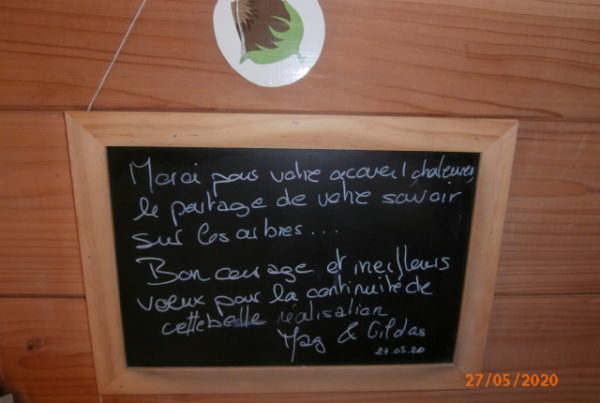 Merci pour votre accueil chaleureux,
le partage de votre savoir
sur les arbres...
Bon courage et meilleurs
voeux pour la continuité de
cette belle réalisation
Mag & Gildas
27.05.20
27/05/2020